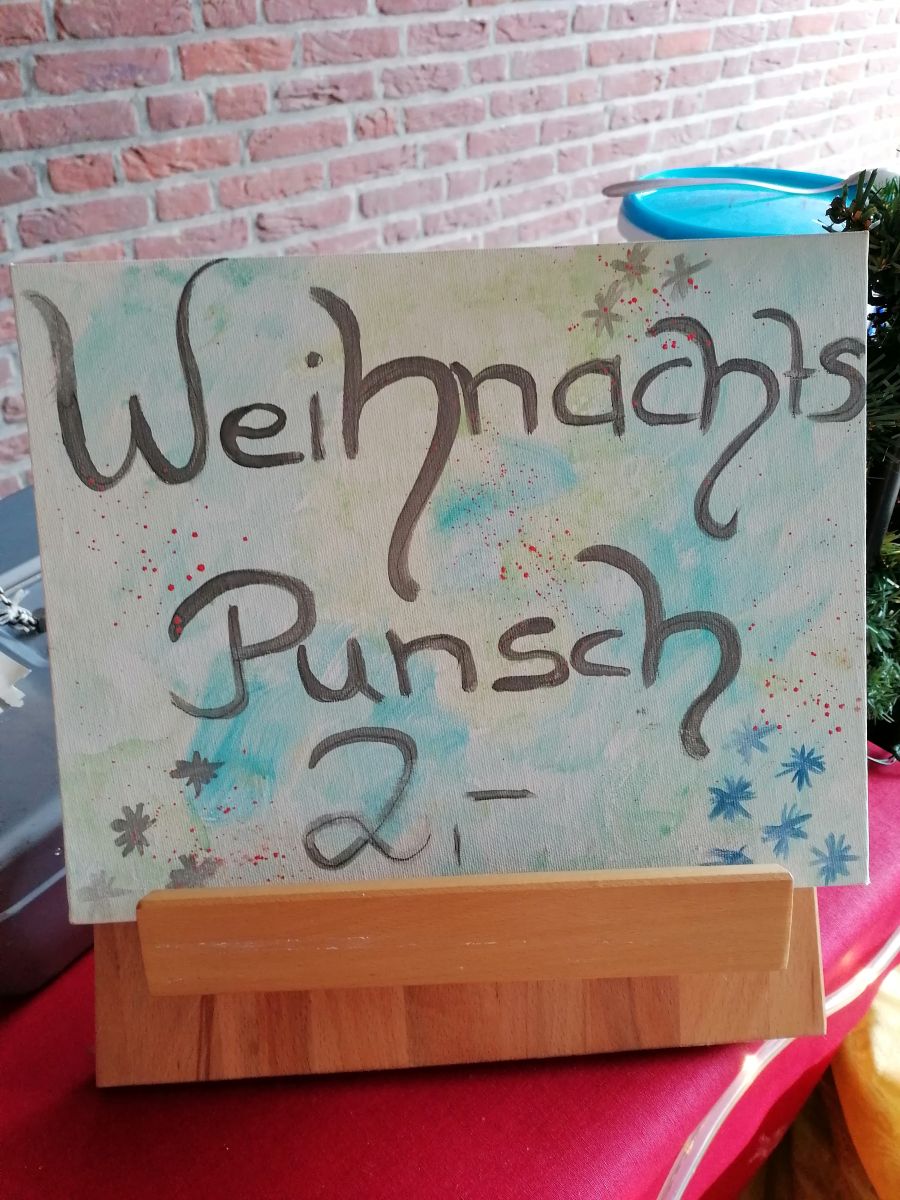 Weihnachts
Punsch
2,-